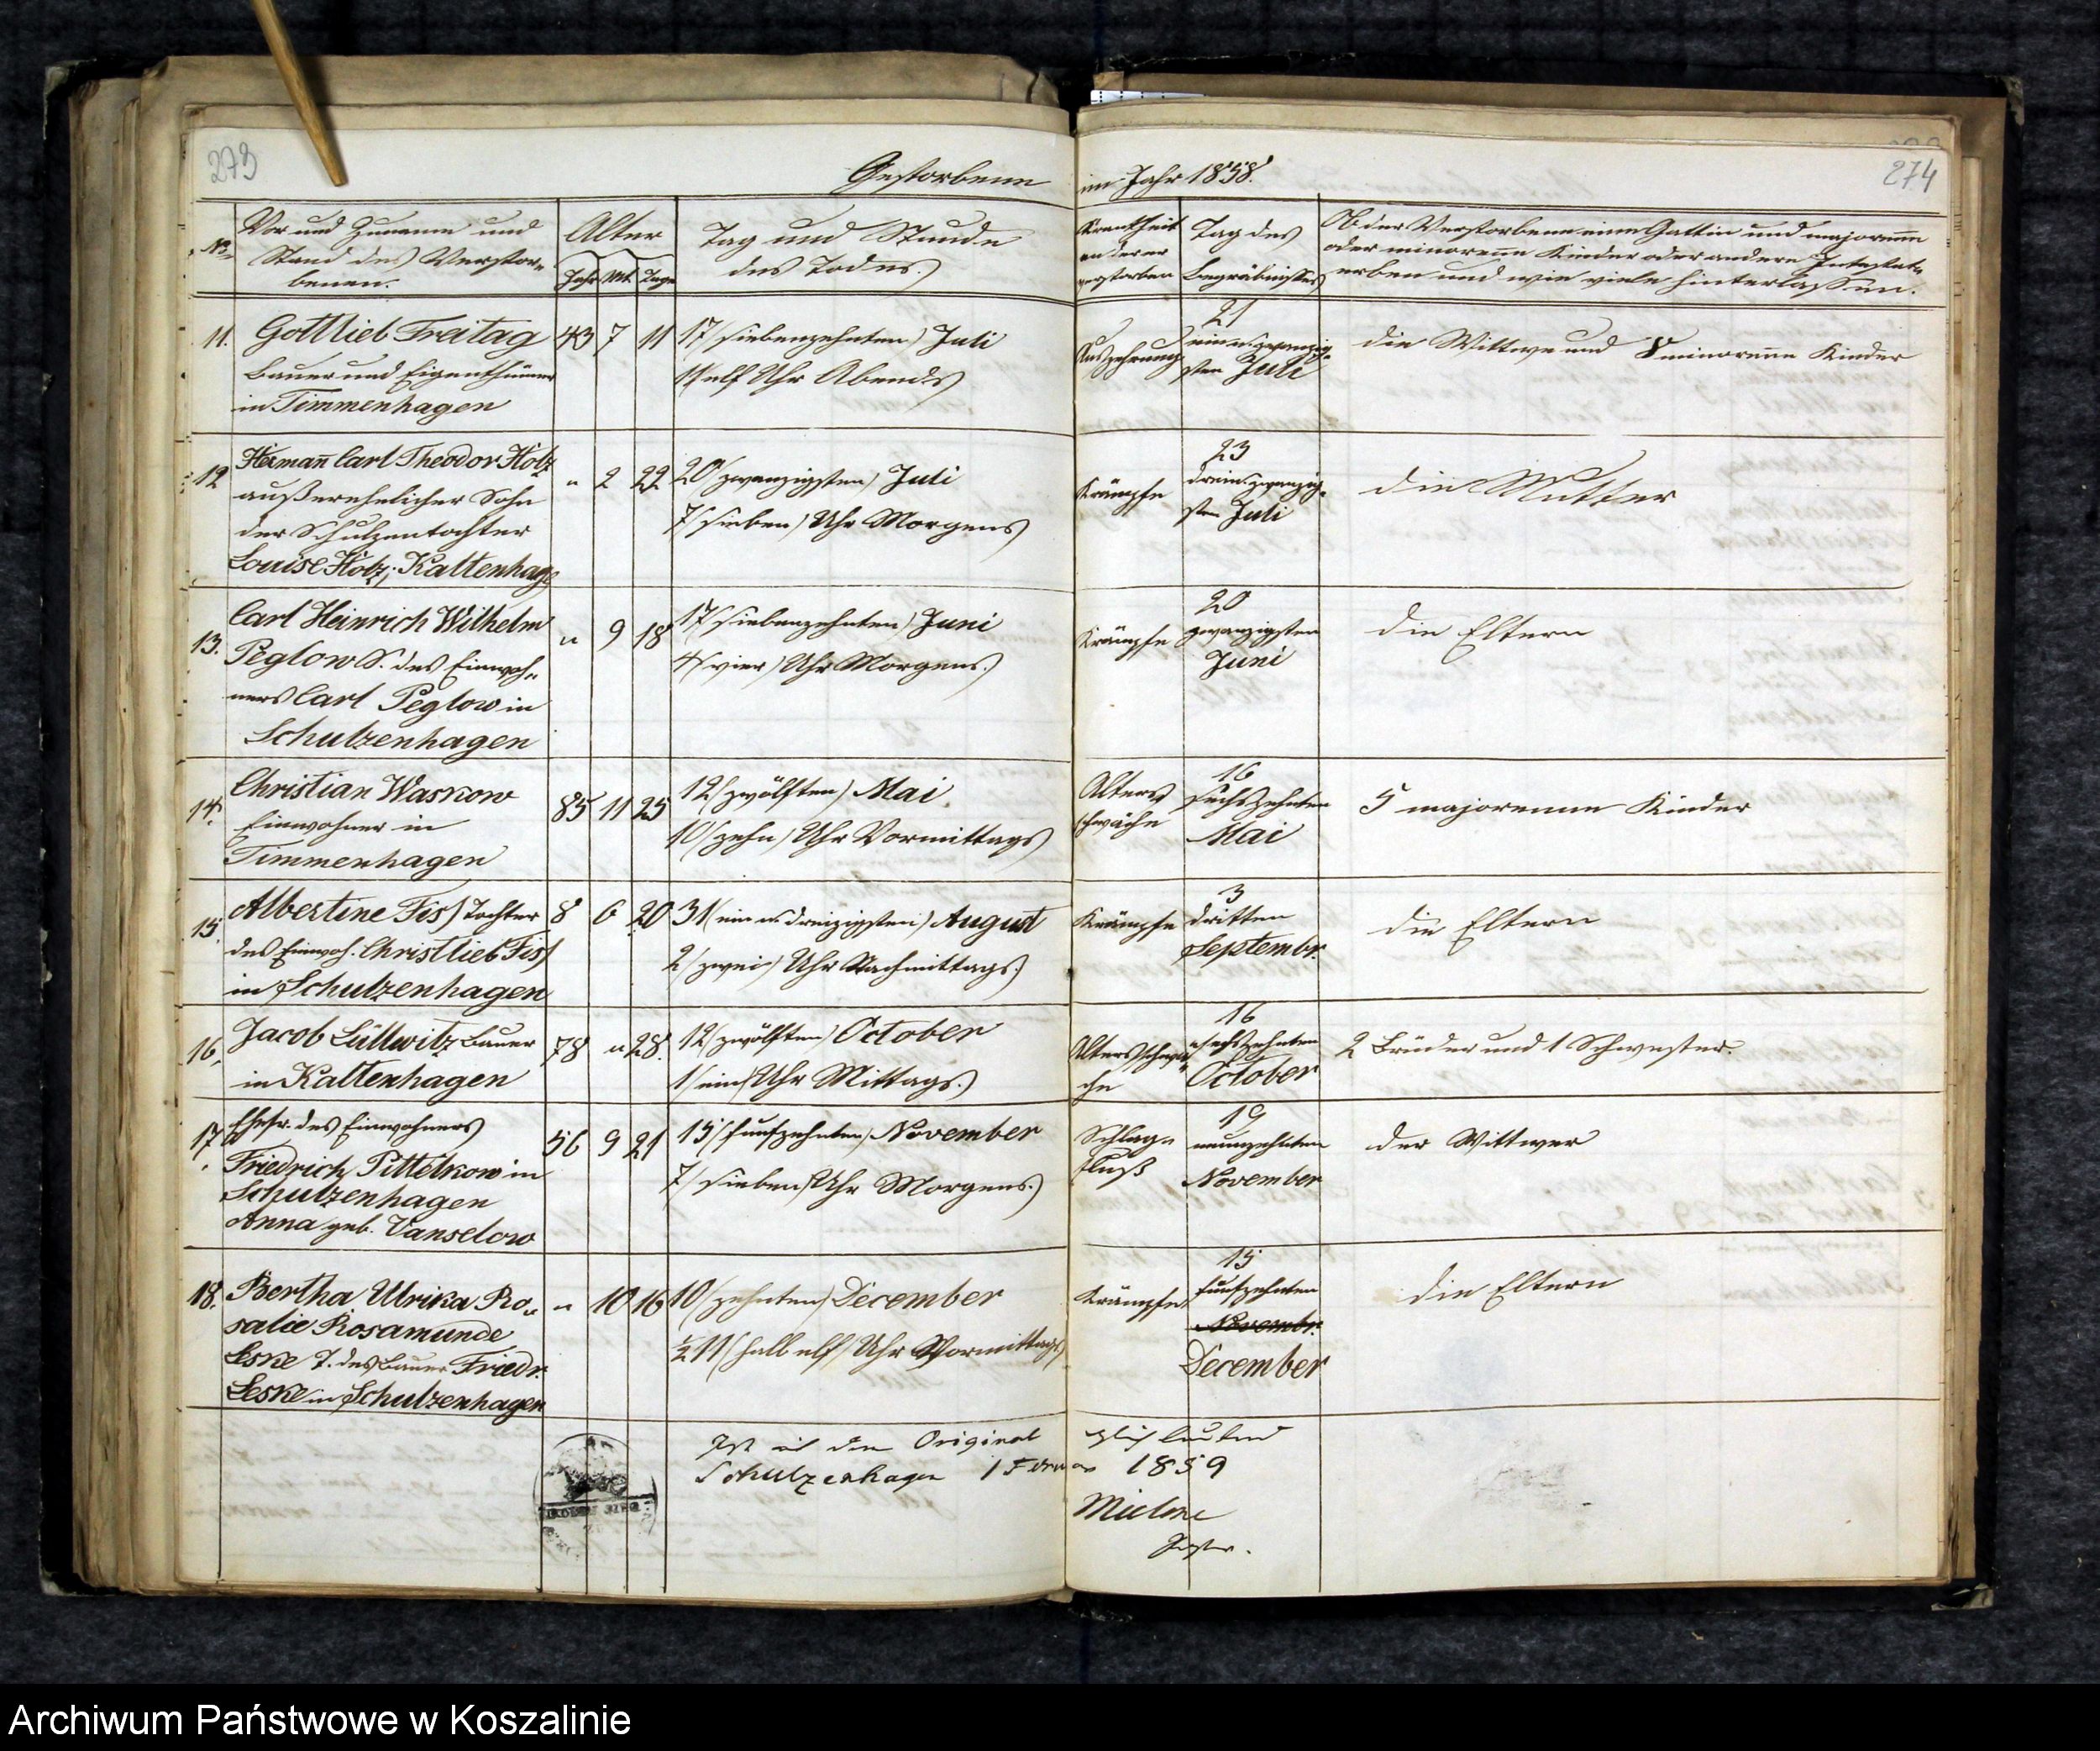 273
274
Gestorbene im Jahr 1858.
No.
Vor und Zuname und
Stand des Verstor-
benen.
Alter
Jahr Mt. Tage
Tag und Stunde
des Todes.
Krankheit
an derer
gestorben
Tag des
Begräbnisses
Ob der Verstorbene eine Gattin und majorenne
oder minorenne Kinder oder andere Intestat-
erben und wie viele hinterlassen.
11. Gottlieb Freitag 43 7 11 17 (siebenzehnten) Juli
Bauer und Eigenthümer 11 elf Uhr Abends
in Timmenhagen
Auszehrung
21
ein u. zwanzig-
sten Juli
die Wittwe und minorenne Kinder
12 Hermann Carl Theodor Holz " 2 22 20 (zwanzigsten) Juli
außerehelicher Sohn 7 (sieben) Uhr Morgens
der Schulzentochter
Louise Holz; Kaltenhage
Krämpfe
23
drei u. zwanzig-
sten Juli
die Mutter
13. Carl Heinrich Wilhelm " 9 18 17 (siebenzehnten) Juni
Peglow S. des Einwoh- 4 (vier) Uhr Morgens.
ners Carl Peglow in
Schulzenhagen
Krämpfe
20
zwanzigsten
Juni
die Eltern
14. Christian Waskow 85 11 25 12 (zwölften) Mai
Einwohner in 10 (zehn) Uhr Vormittags
Timmenhagen
Alters
schwäche
16
sechszehnten
Mai
5 majorenne Kinder
15. Albertine Fis) Tochter 8 6 20 31 (ein u. dreizigsten) August
des Einwoh. Christlieb Fis) 2 (zwei) Uhr Nachmittags.
in Schulzenhagen
Krämpfe
3
dritten
Septembr.
die Eltern
16. Jacob Lüllwitz Bauer 78 " 28. 12 (zwölften) October
in Kaltenhagen 1 (ein) Uhr Mittags.
Altersschwä-
che
16
sechszehnten
October
2 Brüder und 1 Schwester.
17. Ehefr. des Einwohners 56 9 21 15 (funfzehnten) November
Friedrich Pittelkow in 7 (sieben) Uhr Morgens.
Schulzenhagen
Anna geb. Vanselow
Schlag-
fluß
19
neunzehnten
November
der Wittwer
18. Bertha Ulrika Ro- " 10 16 10 (zehnten) December
salie Rosamunde ½ 11 (halb elf) Uhr Vormittags
Leske T. des Bauer Friedr.
Leske in Schulzenhagen
Krämpfe
15
funfzehnten
Novembr.
December
die Eltern
Ist mit dem Original gleichlautend
Schulzenhagen 1 Februar 1859
Pastor.
Archiwum Państwowe w Koszalinie